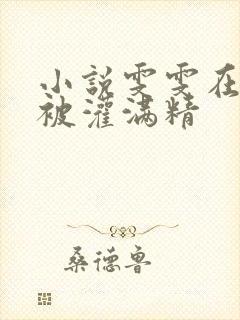 小說雯雯在
被灌满精
桑德鲁